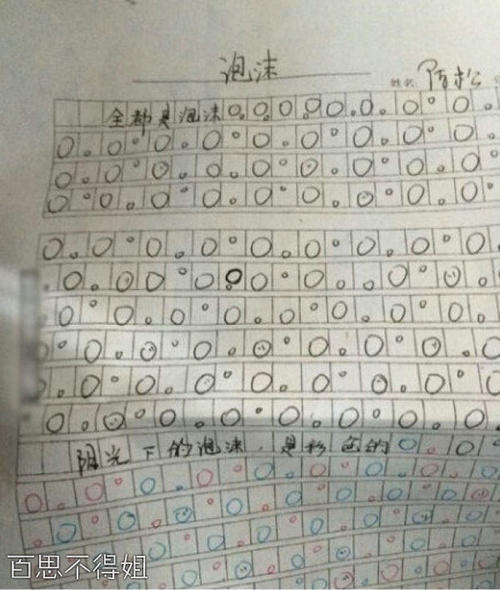 泡沫
姓名: 陈松
全都是泡沫
阳光下的泡沫，是彩色的
百思不得姐